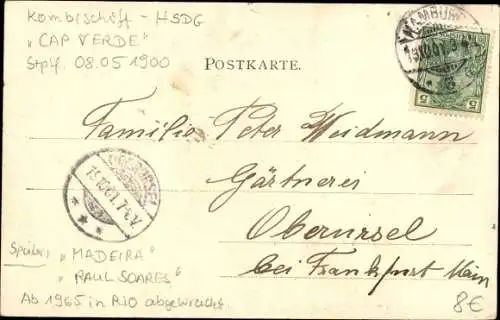 Kombischiff - HSDG
"CAP VERDE"
Stpfl. 08.05 1900
HAMBURG
POSTKARTE.
5 5
Familie Peter Weidmann
Gärtnerei
Oberursel
bei Frankfurt Main
OBERURSEL
Später "MADEIRA"
"RAUL SOARES"
Ab 1965 in RIO abgewrackt
8€